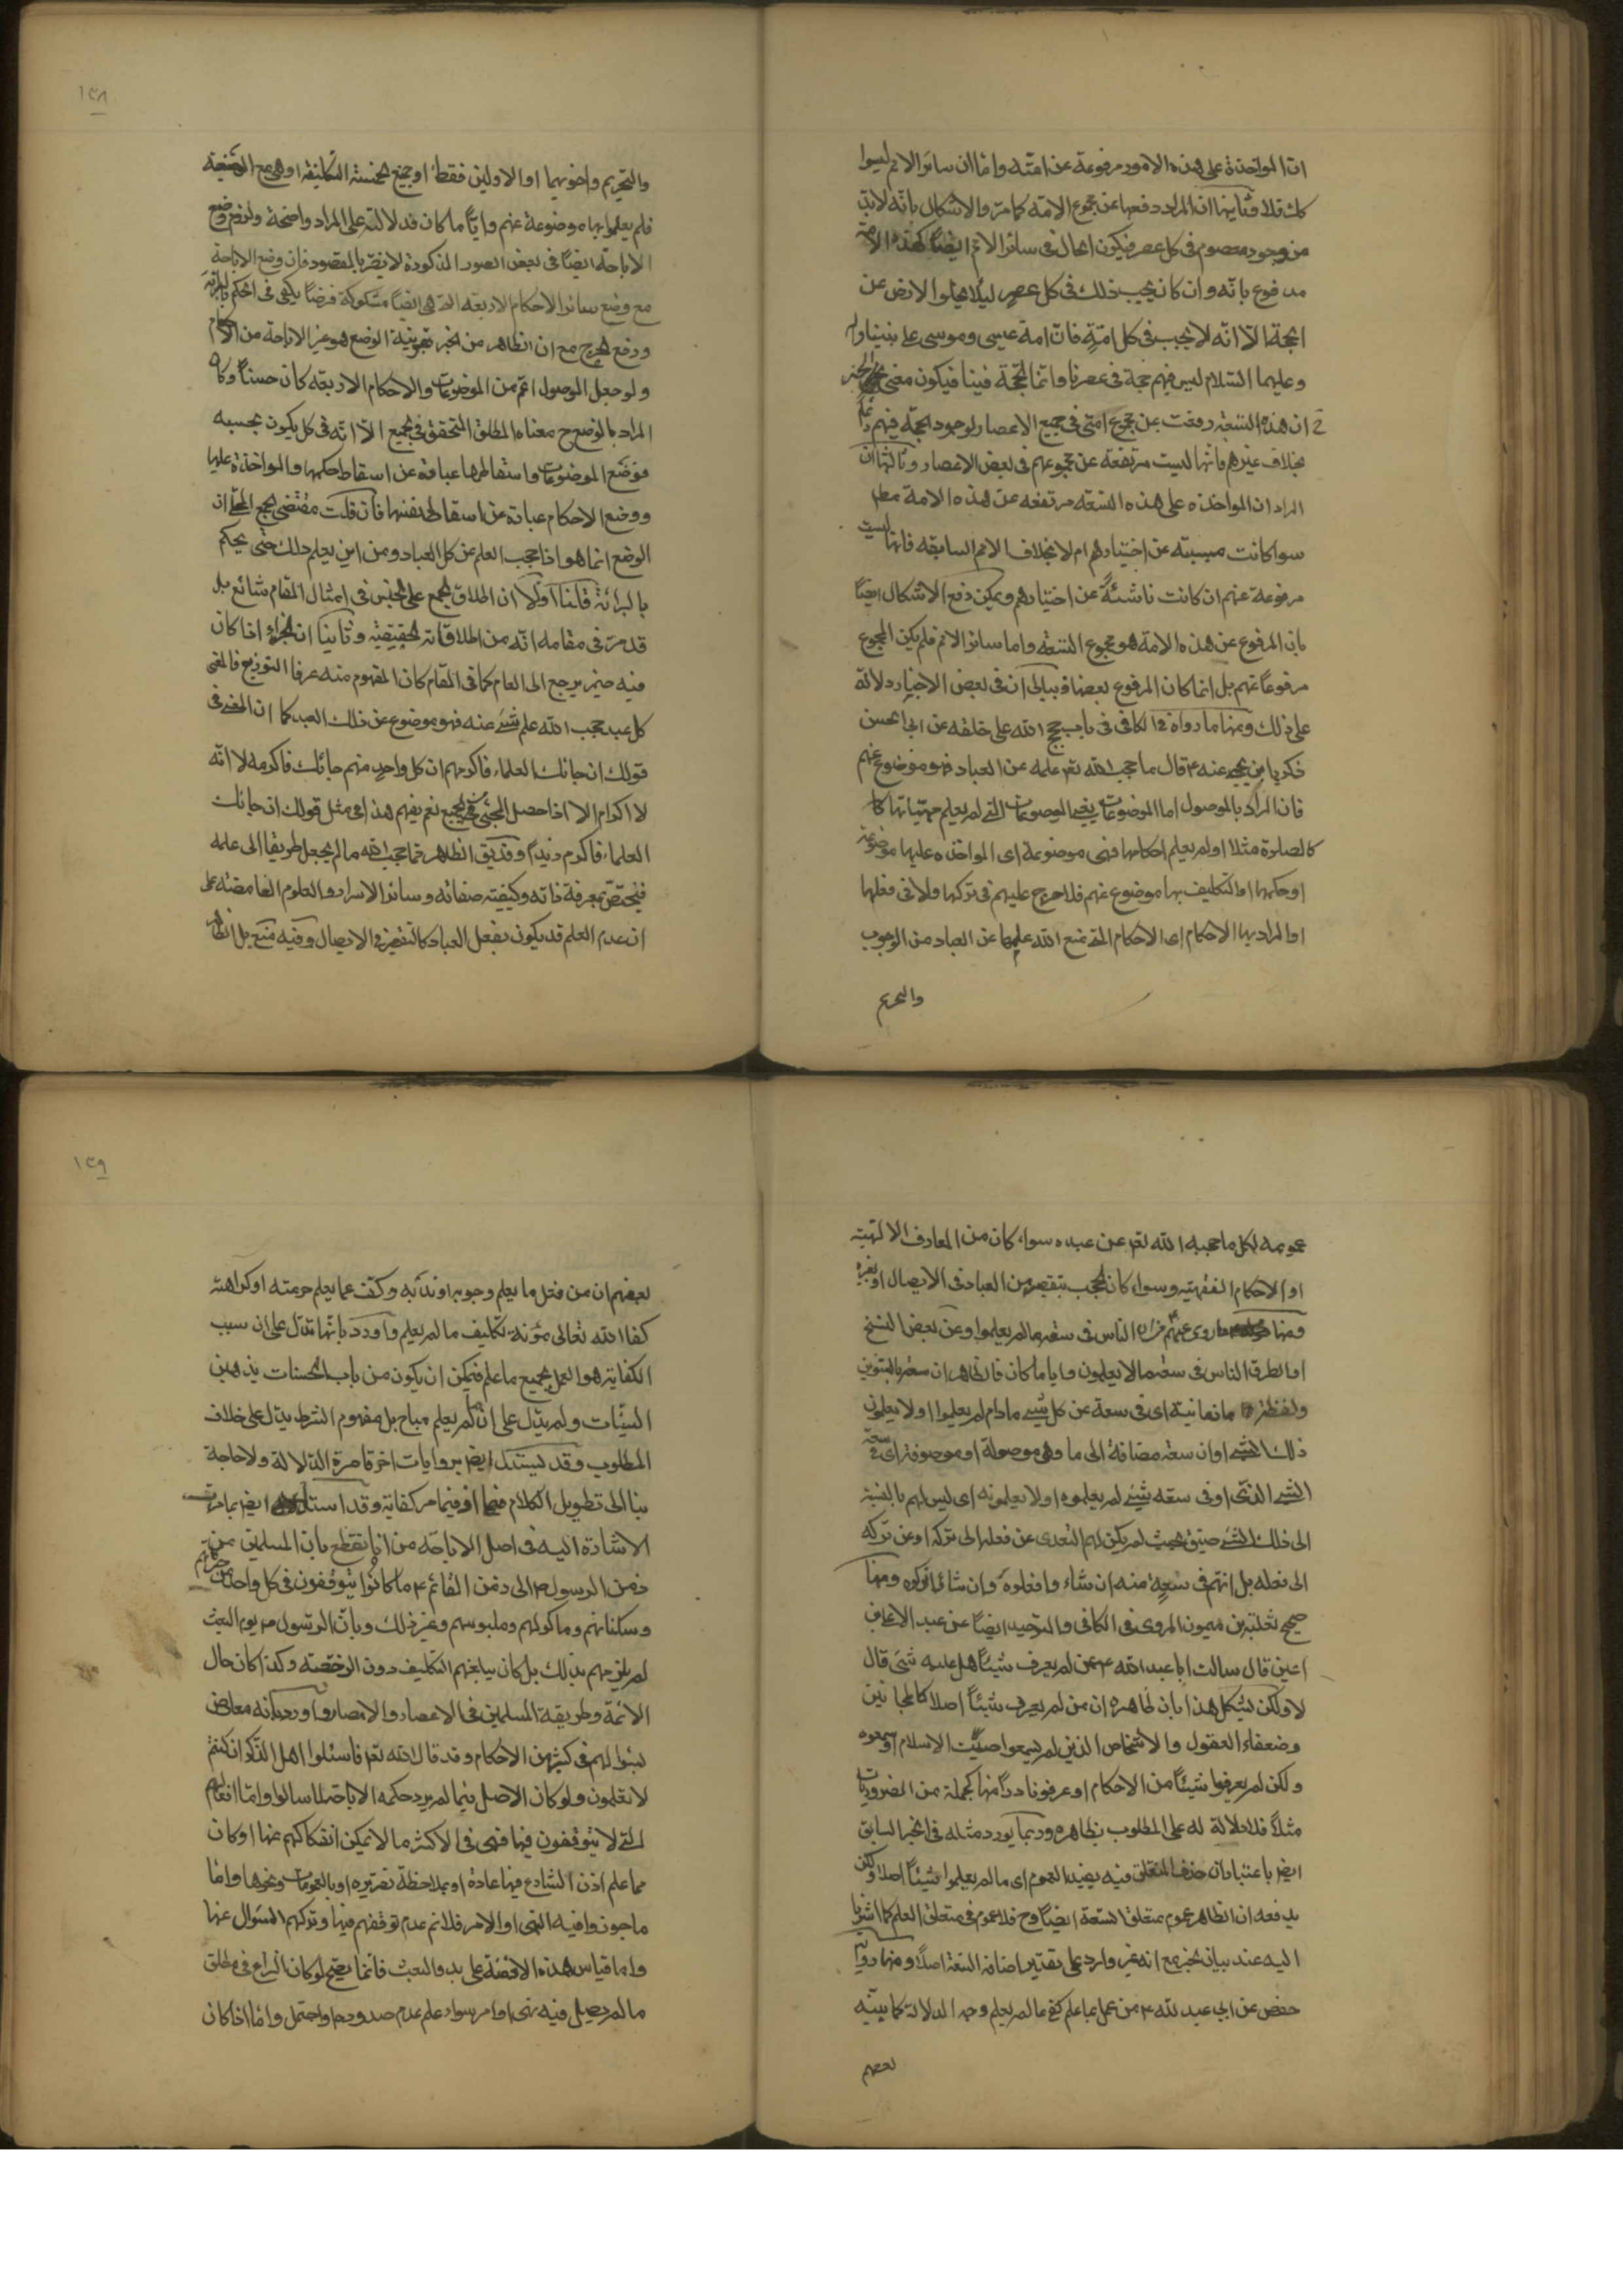 ان المواخذة على هذه الامور مرفوعة عن امته واما ان سائر الامم ليسوا
كك فلا وثانيها ان المراد دفعها عن مجموع الامة كما مر والاشكال بانه لابد
من وجود معصوم فى كل عصر فيكون الحال فى سائر الامم ايضا كهذه الامة
مدفوع بانه وان كان يجب ذلك فى كل عصر ليلا يخلوا الارض عن
الحجة الا انه لا يجب فى كل امة فان امة عيسى وموسى على نبينا واله
وعليهما السلام ليس فيهم حجة فى عصرنا وانما الحجة فينا فيكون معنى الخبر
ان هذه التسعة رفعت عن مجموع امتى فى جميع الاعصار لوجود الحجة فيهم
بخلاف غيرهم فانها ليست مرتفعة عن مجموعهم فى بعض الاعصار وثالثها ان
المراد ان المواخذه على هذه التسعه مرتفعه عن هذه الامة مطلقا
سوا كانت مسببته عن اختيارهم ام لا بخلاف الامم السابقه فانها ليست
مرفوعة عنهم ان كانت ناشئة عن اختيارهم ويمكن دفع الاشكال ايضا
بان المرفوع عن هذه الامة هو مجموع التسعه واما سائر الامم فلم يكن المجموع
مرفوعا عنهم بل انما كان المرفوع بعضها وببالى ان فى بعض الاخبار دلالة
على ذلك ومنها ما رواه فى الكافى فى باب حجج الله على خلقه عن ابى الحسن
زكريا بن يحيى عنه ع قال ما حجب الله تعر علمه عن العباد فهو موضوع عنهم
فان المراد بالموصول اما الموضوعات يعنى الموضوعات التى لم يعلم مهيتاتها كا
كالصلوة مثلا او لم يعلم احكامها فهى موضوعة اى المواخذه عليها موضوعة
او حكمها او التكليف بها موضوع عنهم فلا حرج عليهم فى تركها ولا فى فعلها
او المراد بها الاحكام اى الاحكام التى منع الله علمها عن العباد من الوجوب
والتحريم
١٣٨
والتحريم واخويهما او الاولين فقط او جميع الخمسة التكليفية او هى مع الوضعية
فلم يعلموا بها موضوعة عنهم وايا ما كان فدلالته على المراد واضحة ولزوم وضع
الاباحة ايضا فى بعض الصور المذكورة لا يضر بالمقصود فان وضع الاباحة
مع وضع سائر الاحكام الاربعه التى هى ايضا مشكوكة فرضا يكفى فى الحكم بالبرائة
ورفع الحرج مع ان الظاهر من الخبر بقرينة الوضع هو غير الاباحة من الاحكام
ولو جعل الموصول اعم من الموضوعات والاحكام الاربعه كان حسنا وكان
المراد بالوضع ح معناه المطلق المتحقق فى الجميع الا انه فى كل يكون بحسبه
فوضع الموضوعات واسقاطها عبارة عن اسقاط حكمها والمواخذة عليها
ووضع الاحكام عبارة عن اسقاطها نفسها فان قلت مقتضى الجمع المحلى ان
الوضع انما هو اذا حجب العلم عن كل العباد ومن اين يعلم ذلك حتى يحكم
بالبرائة قلنا اولا ان اطلاق الجمع على الجنس فى امثال المقام شائع بل
قد مر فى مقامه انه من اطلاقاته الحقيقية وثانيا ان الجزاء اذا كان
فيه ضمير يرجع الى العام كما فى المقام كان المفهوم منه عرفا التوزيع فالمعنى
كل عبد حجب الله علم شئ عنه فهو موضوع عن ذلك العبد كما ان المعنى فى
قولك ان جائك العلماء فاكرمهم ان كل واحد منهم جائك فاكرمه لا انه
لا اكرام الا اذا حصل المجئى فى الجميع نعم يفهم هذا فى مثل قولك ان جائك
العلماء فاكرم زيدا وقد يق الظاهر مما حجب الله ما لم يجعل طريقا الى علمه
فيختص بمعرفة ذاته وكيفية صفاته وسائر الاسرار والعلوم الغامضه على
ان عدم العلم قد يكون بفعل العباد كالتقصير فى الايصال وفيه منع بل الظاهر
عمومه لكل ما حجبه الله تعر عن عبده سواء كان من المعارف الالهية
او الاحكام الفقهيته وسواء كان الحجب بتقصير من العباد فى الايصال او بغيره
ومنها ما روى عنهم ان الناس فى سعة ما لم يعلموا وعن بعض النسخ
او الطرق الناس فى سعة ما لا يعلمون وايا ما كان فالظاهر ان سعة بالتنوين
ولفظة ما زمانية اى فى سعة عن كل شئ مادام لم يعلموا او لا يعلمون
ذلك الشئ او ان سعة مضافة الى ما وهى موصولة او موصوفة اى فى سعة
الشئ الذى او فى سعه شئ لم يعلموه او لا يعلمونه اى ليس لهم بالنسبة
الى ذلك الشئ ضيق بحيث لم يكن لهم التعدى عن فعله الى تركه او عن تركه
الى فعله بل انهم فى سعة منه ان شاء وافعلوه وان شائوا تركوه ومنها
صحيح ثعلبة بن ميمون المروى فى الكافى والتوحيد ايضا عن عبد الاعلى بن
اعين قال سالت ابا عبد الله ع عمن لم يعرف شيئا هل عليه شئ قال
لا ولكن يشكل هذا بان ظاهره ان من لم يعرف شيئا اصلا كالمجانين
وضعفاء العقول والاشخاص الذين لم يسمعوا صيت الاسلام او سمعوه
ولكن لم يعرفوا شيئا من الاحكام او عرفوا نادرا منها كجملة من الضروريات
مثلا فلا دلالة له على المطلوب بظاهره وربما يورد مثله فى الخبر السابق
ايضر باعتبار ان حذف المتعلق فيه يفيد العموم اى ما لم يعلموا شيئا اصلا ولكن
يدفعه ان الظاهر عموم متعلق السعة ايضا وح فلا عموم فى متعلق العلم كما اشرنا
اليه عند بيان الخبر مع انه غير وارد على تقدير اضافة السعة اصلا ومنها رواية
حفص عن ابى عبد لله ع من عمل بما علم كفى ما لم يعلم وجه الدلالة كما بينه
بعضهم
١٣٩
بعضهم ان من فعل ما يعلم وجوبه او ندبه وكف عما يعلم حرمته او كراهته
كفا الله تعالى مؤنة تكليف ما لم يعلم واورد بانها تدل على ان سبب
الكفاية هو العمل بجميع ما علم فيمكن ان يكون من باب الحسنات يذهبن
السيئات ولم يدل على ان ما لم يعلم مباح بل مفهوم الشرط يدل على خلاف
المطلوب وقد يستدل ايضر بروايات اخر قاصرة الدلالة ولا حاجة
بنا الى تطويل الكلام فيها اذ فيما مر كفاية وقد استدل ايضر بما مرت
الاشارة اليه فى اصل الاباحة من انا نقطع بان المسلمين من
زمن الرسول ص الى زمن القائم ع ما كانوا يتوقفون فى كل واحد من حركاتهم
وسكناتهم وماكولهم وملبوسهم وغير ذلك وبان الرسول ص يوم البعث
لم يلزمهم بذلك بل كان يبلغهم التكليف دون الرخصة وكذا كان حال
الائمة وطريقة المسلمين فى الاعصار والامصار واورد بانه معارض
بسؤالهم فى كثير من الاحكام وقد قال الله تعر فاسئلوا اهل الذكر ان كنتم
لا تعلمون ولو كان الاصل فيما لم يرد حكمه الاباحة لما سالوا واما افعالهم
التى لا يتوقفون فيها فهى فى الاكثر ما لا يمكن انفكاكهم عنها او كان
مما علم اذن الشارع فيها عادة او بملاحظة تقريره او بالعمومات ونحوها واما
ما جوزوا فيه النهى او الامر فلا نم عدم توقفهم فيها وتركهم السؤال عنها
واما قياس هذه الازمنة على بدو البعث فانما يصح لو كان النزاع فى مطلق
ما لم يصل فيه نهى او امر سواء علم عدم صدورهما او احتمل واما اذا كان